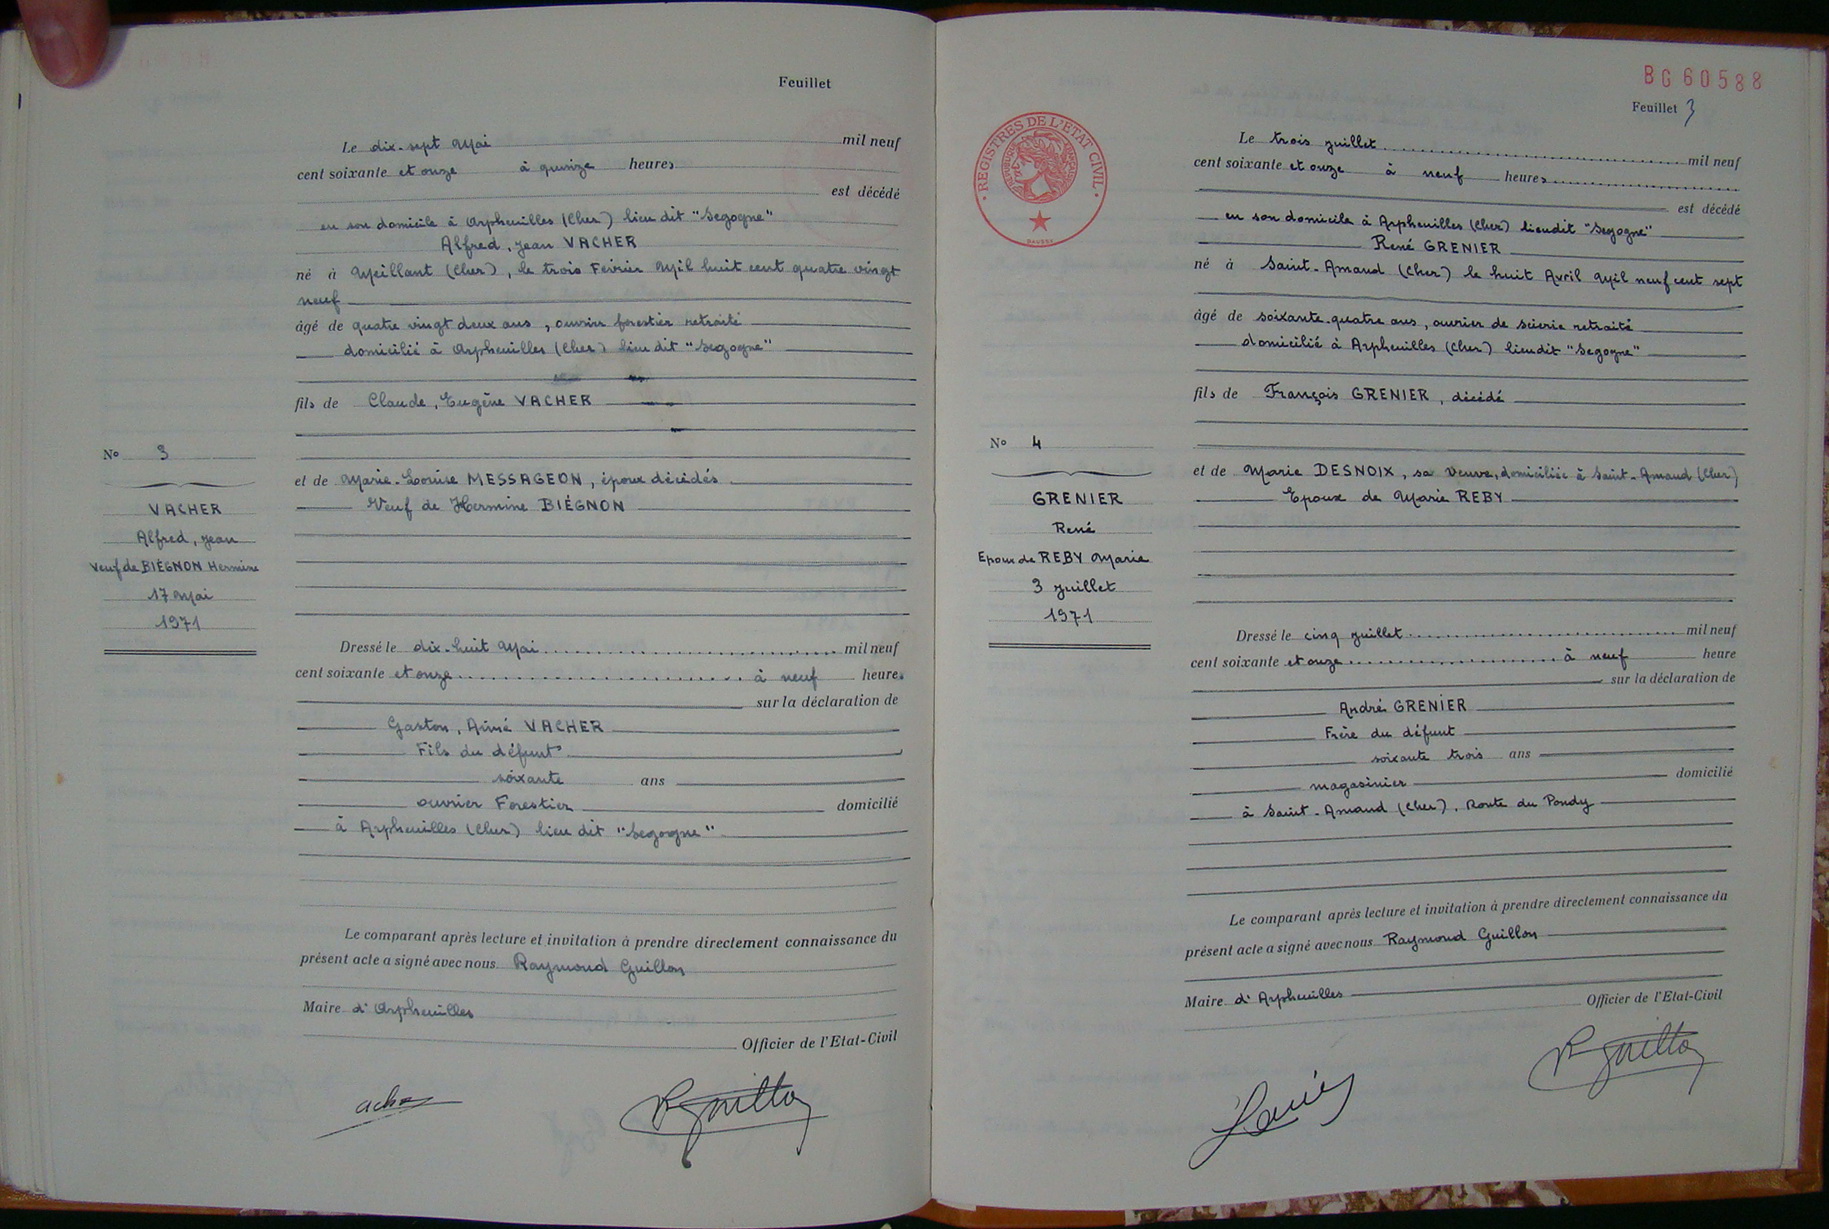 Feuillet
Le dix-sept Mai mil neuf
cent soixante et onze à quinze heures
est décédé
en son domicile à Arpheuilles (Cher) lieu dit "Segogne"
Alfred, Jean VACHER
né à Meillant (Cher), le trois Février Mil huit cent quatre vingt
neuf
âgé de quatre vingt deux ans, ouvrier forestier retraité
domicilié à Arpheuilles (Cher) lieu dit "Segogne"
fils de Claude, Eugène VACHER
et de Marie-Louise MESSAGEON, époux décédés
Veuf de Hermine BIÉGNON
No 3
VACHER
Alfred, Jean
Veuf de BIÉGNON Hermine
17 Mai
1971
Dressé le dix-huit Mai mil neuf
cent soixante et onze à neuf heures
sur la déclaration de
Gaston, Aimé VACHER
Fils du défunt
soixante ans
ouvrier Forestier domicilié
à Arpheuilles (Cher) lieu dit "Segogne"
Le comparant après lecture et invitation à prendre directement connaissance du
présent acte a signé avec nous Raymond Guillon
Maire d'Arpheuilles
Officier de l'Etat-Civil
BG 60588
Feuillet 3
REGISTRES DE L'ÉTAT CIVIL
Le trois juillet mil neuf
cent soixante et onze à neuf heures
est décédé
en son domicile à Arpheuilles (Cher) lieudit "Segogne"
René GRENIER
né à Saint-Amand (Cher) le huit Avril Mil neuf cent sept
âgé de soixante-quatre ans, ouvrier de scierie retraité
domicilié à Arpheuilles (Cher) lieudit "Segogne"
fils de François GRENIER, décédé
et de Marie DESNOIX, sa Veuve, domiciliée à Saint-Amand (Cher)
Epoux de Marie REBY
No 4
GRENIER
René
Epoux de REBY Marie
3 juillet
1971
Dressé le cinq juillet mil neuf
cent soixante et onze à neuf heure
sur la déclaration de
André GRENIER
Frère du défunt
soixante trois ans
magasinier domicilié
à Saint-Amand (Cher), Route du Pondy
Le comparant après lecture et invitation à prendre directement connaissance du
présent acte a signé avec nous Raymond Guillon
Maire d'Arpheuilles
Officier de l'Etat-Civil